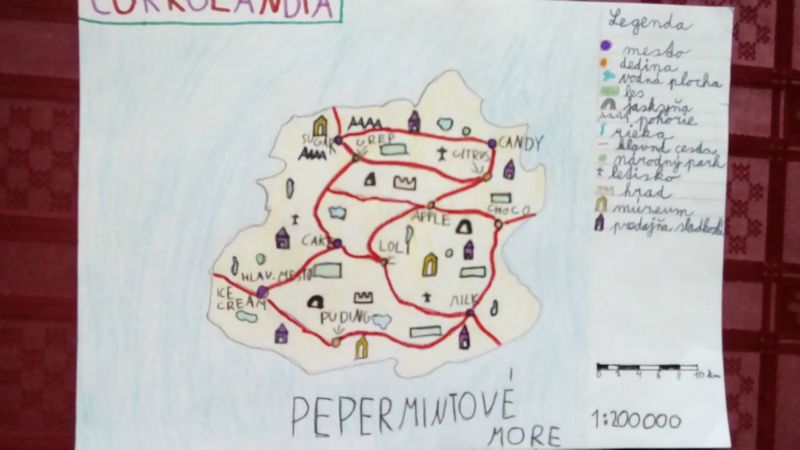 CUKROLANDIA
Legenda
mesto
dedina
vodná plocha
les
jaskyňa
pohorie
rieka
hlavná cesta
národný park
letisko
hrad
múzeum
predajňa sladkostí
SUGAR
GREP
CITRUS
CANDY
APPLE
CHOCO
CAKE
LOLI
HLAV. MESTO
ICE
CREAM
MILK
PUDING
PEPERMINTOVÉ
MORE
0 2 4 6 8 10 km
1:200000